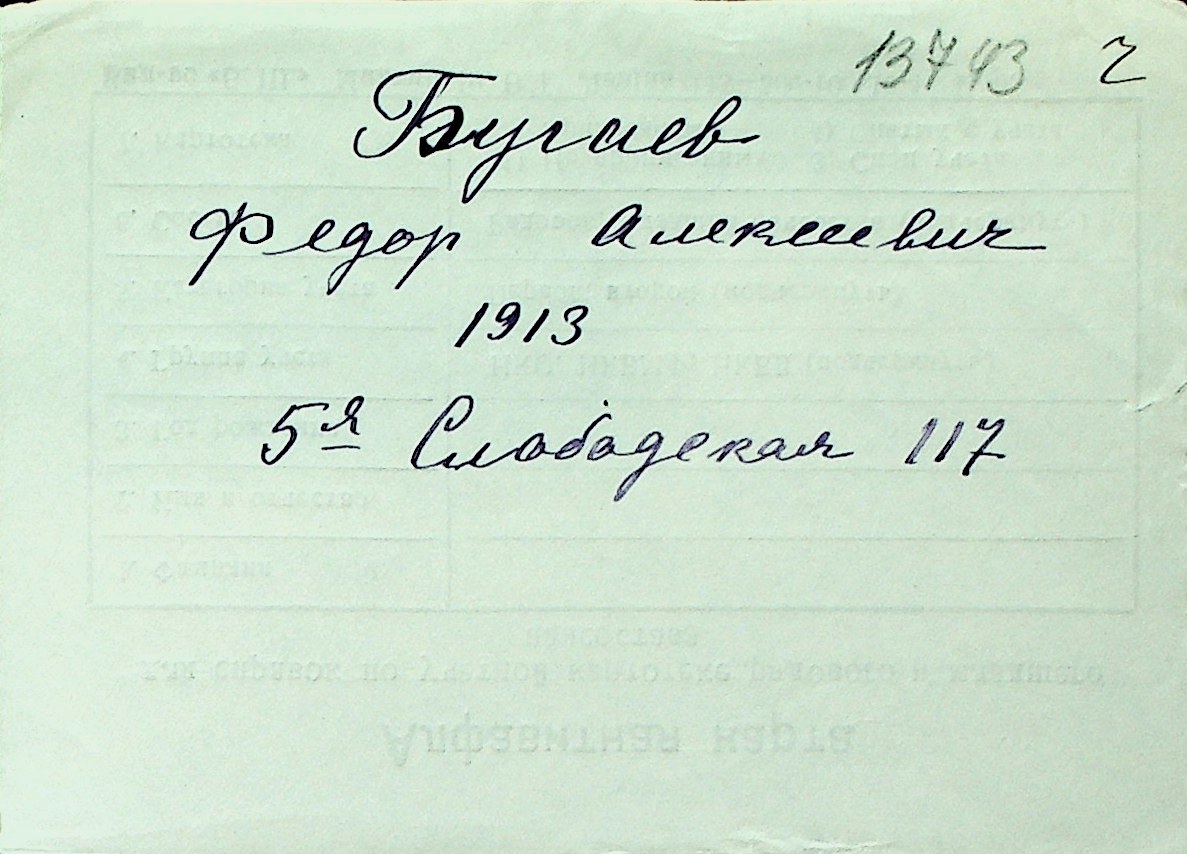 13743 ч
Бугаев
Федор Алексеевич
1913
5я Слободская 117